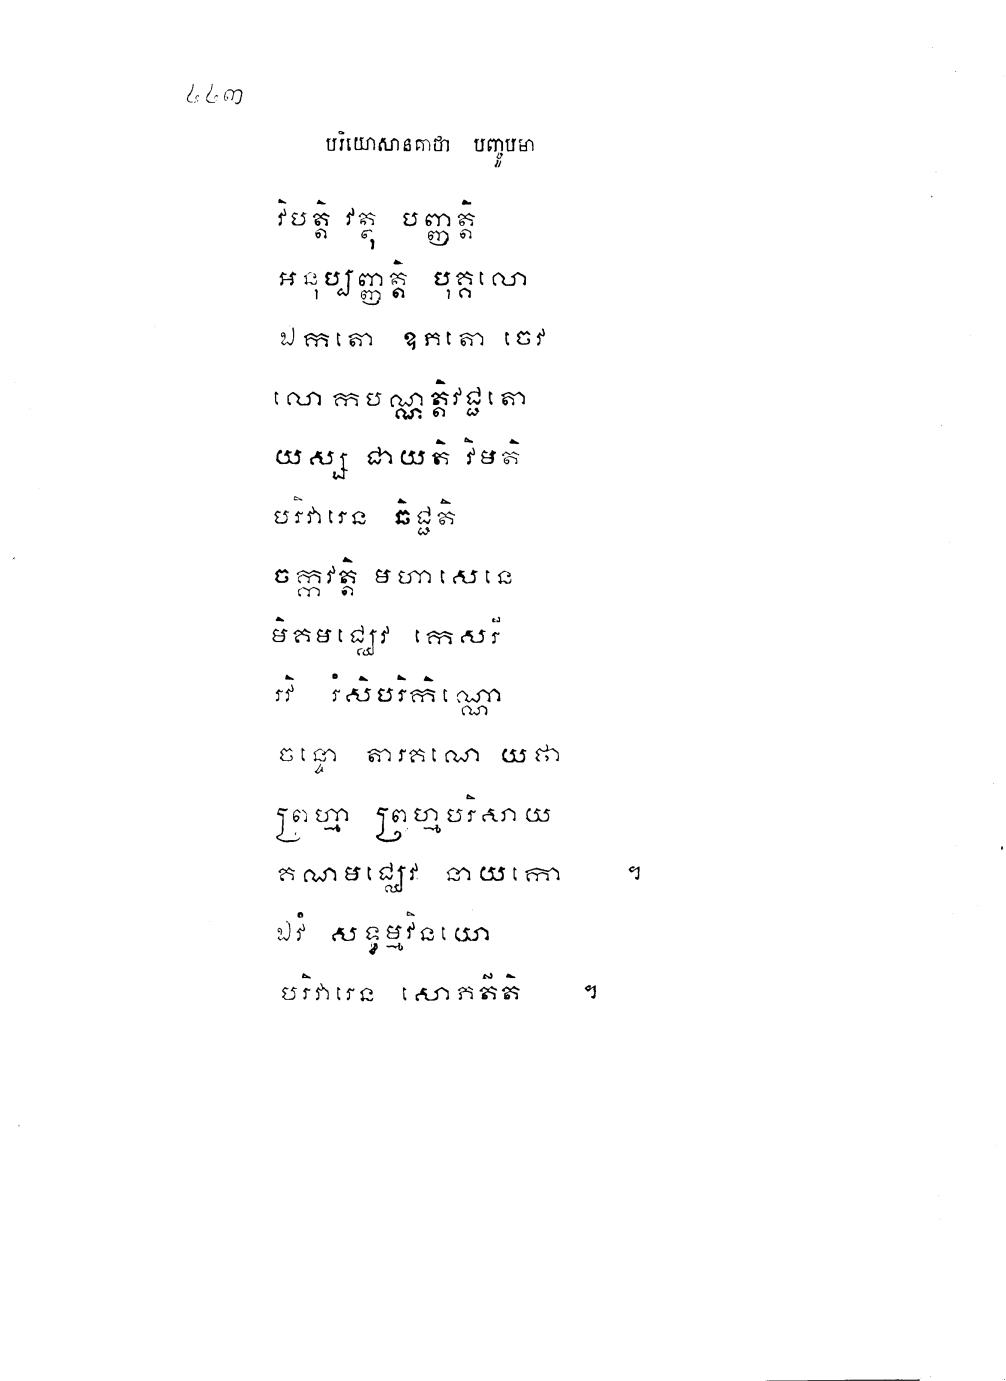 ៤៤៣
បរិយោសានគាថា បញ្ចូបមា
វិបត្តិ វត្ថុ បញ្ញត្តិ
អនុប្បញ្ញត្តិ បុគ្គលោ
ឯកតោ ឧភតោ ចេវ
លោកបណ្ណត្តិវជ្ជតោ
យស្ស ជាយតិ វិមតិ
បរិវារេន ឆិជ្ជតិ
ចក្កវត្តិ មហាសេនេ
មិគមជ្ឈេវ កេសរី
រវិ រំសិបរិកិណ្ណោ
ចន្ទោ តារគណេ យថា
ព្រហ្មា ព្រហ្មបរិសាយ
គណមជ្ឈេវ នាយកោ ។
ឯវំ សទ្ធម្មវិនយោ
បរិវារេន សោភតីតិ ។